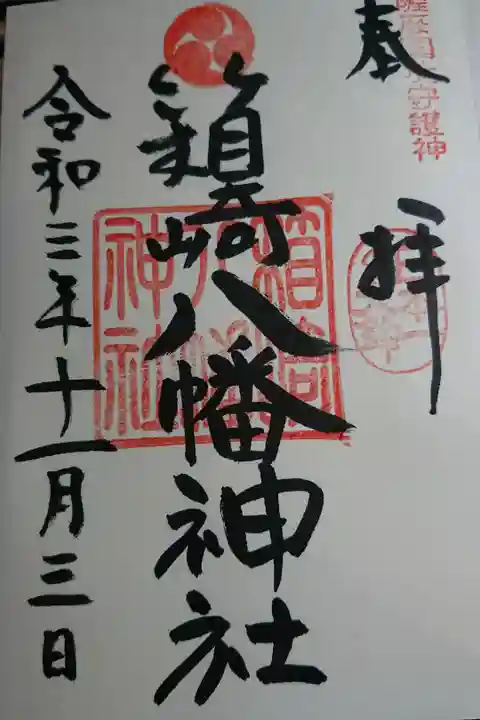 奉拝
守護神
箱崎八幡神社
箱崎
八幡
神社
令和三年十一月三日